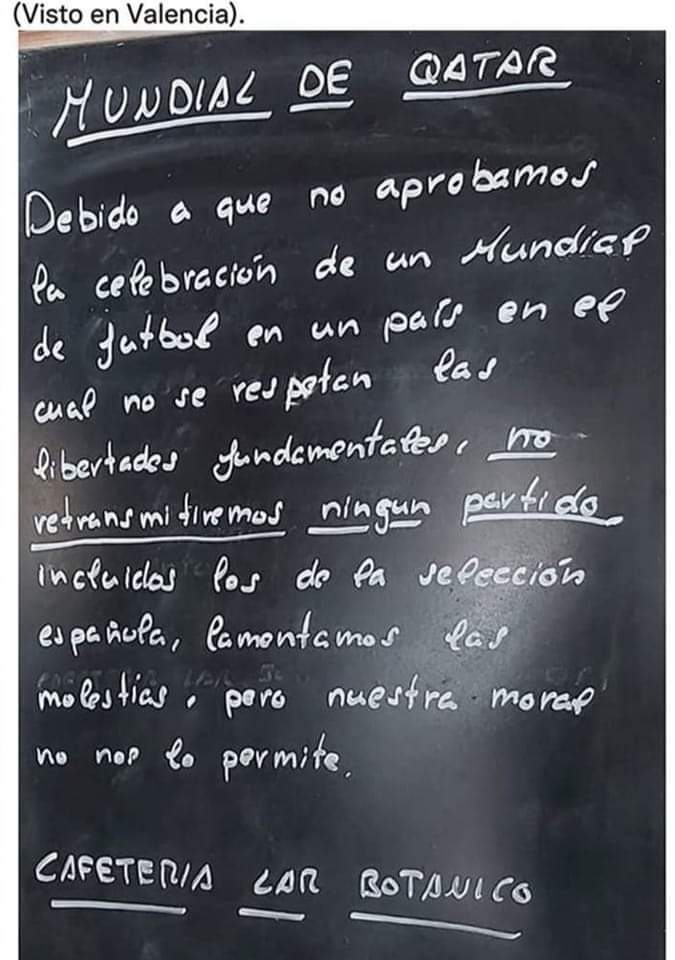 (Visto en Valencia).
MUNDIAL DE QATAR
Debido a que no aprobamos
la celebración de un Mundial
de futbol en un país en el
cual no se respetan las
libertades fundamentales, no
retransmitiremos ningun partido
incluidos los de la selección
española, lamentamos las
molestias, pero nuestra moral
no nos lo permite.
CAFETERIA LAR BOTANICO